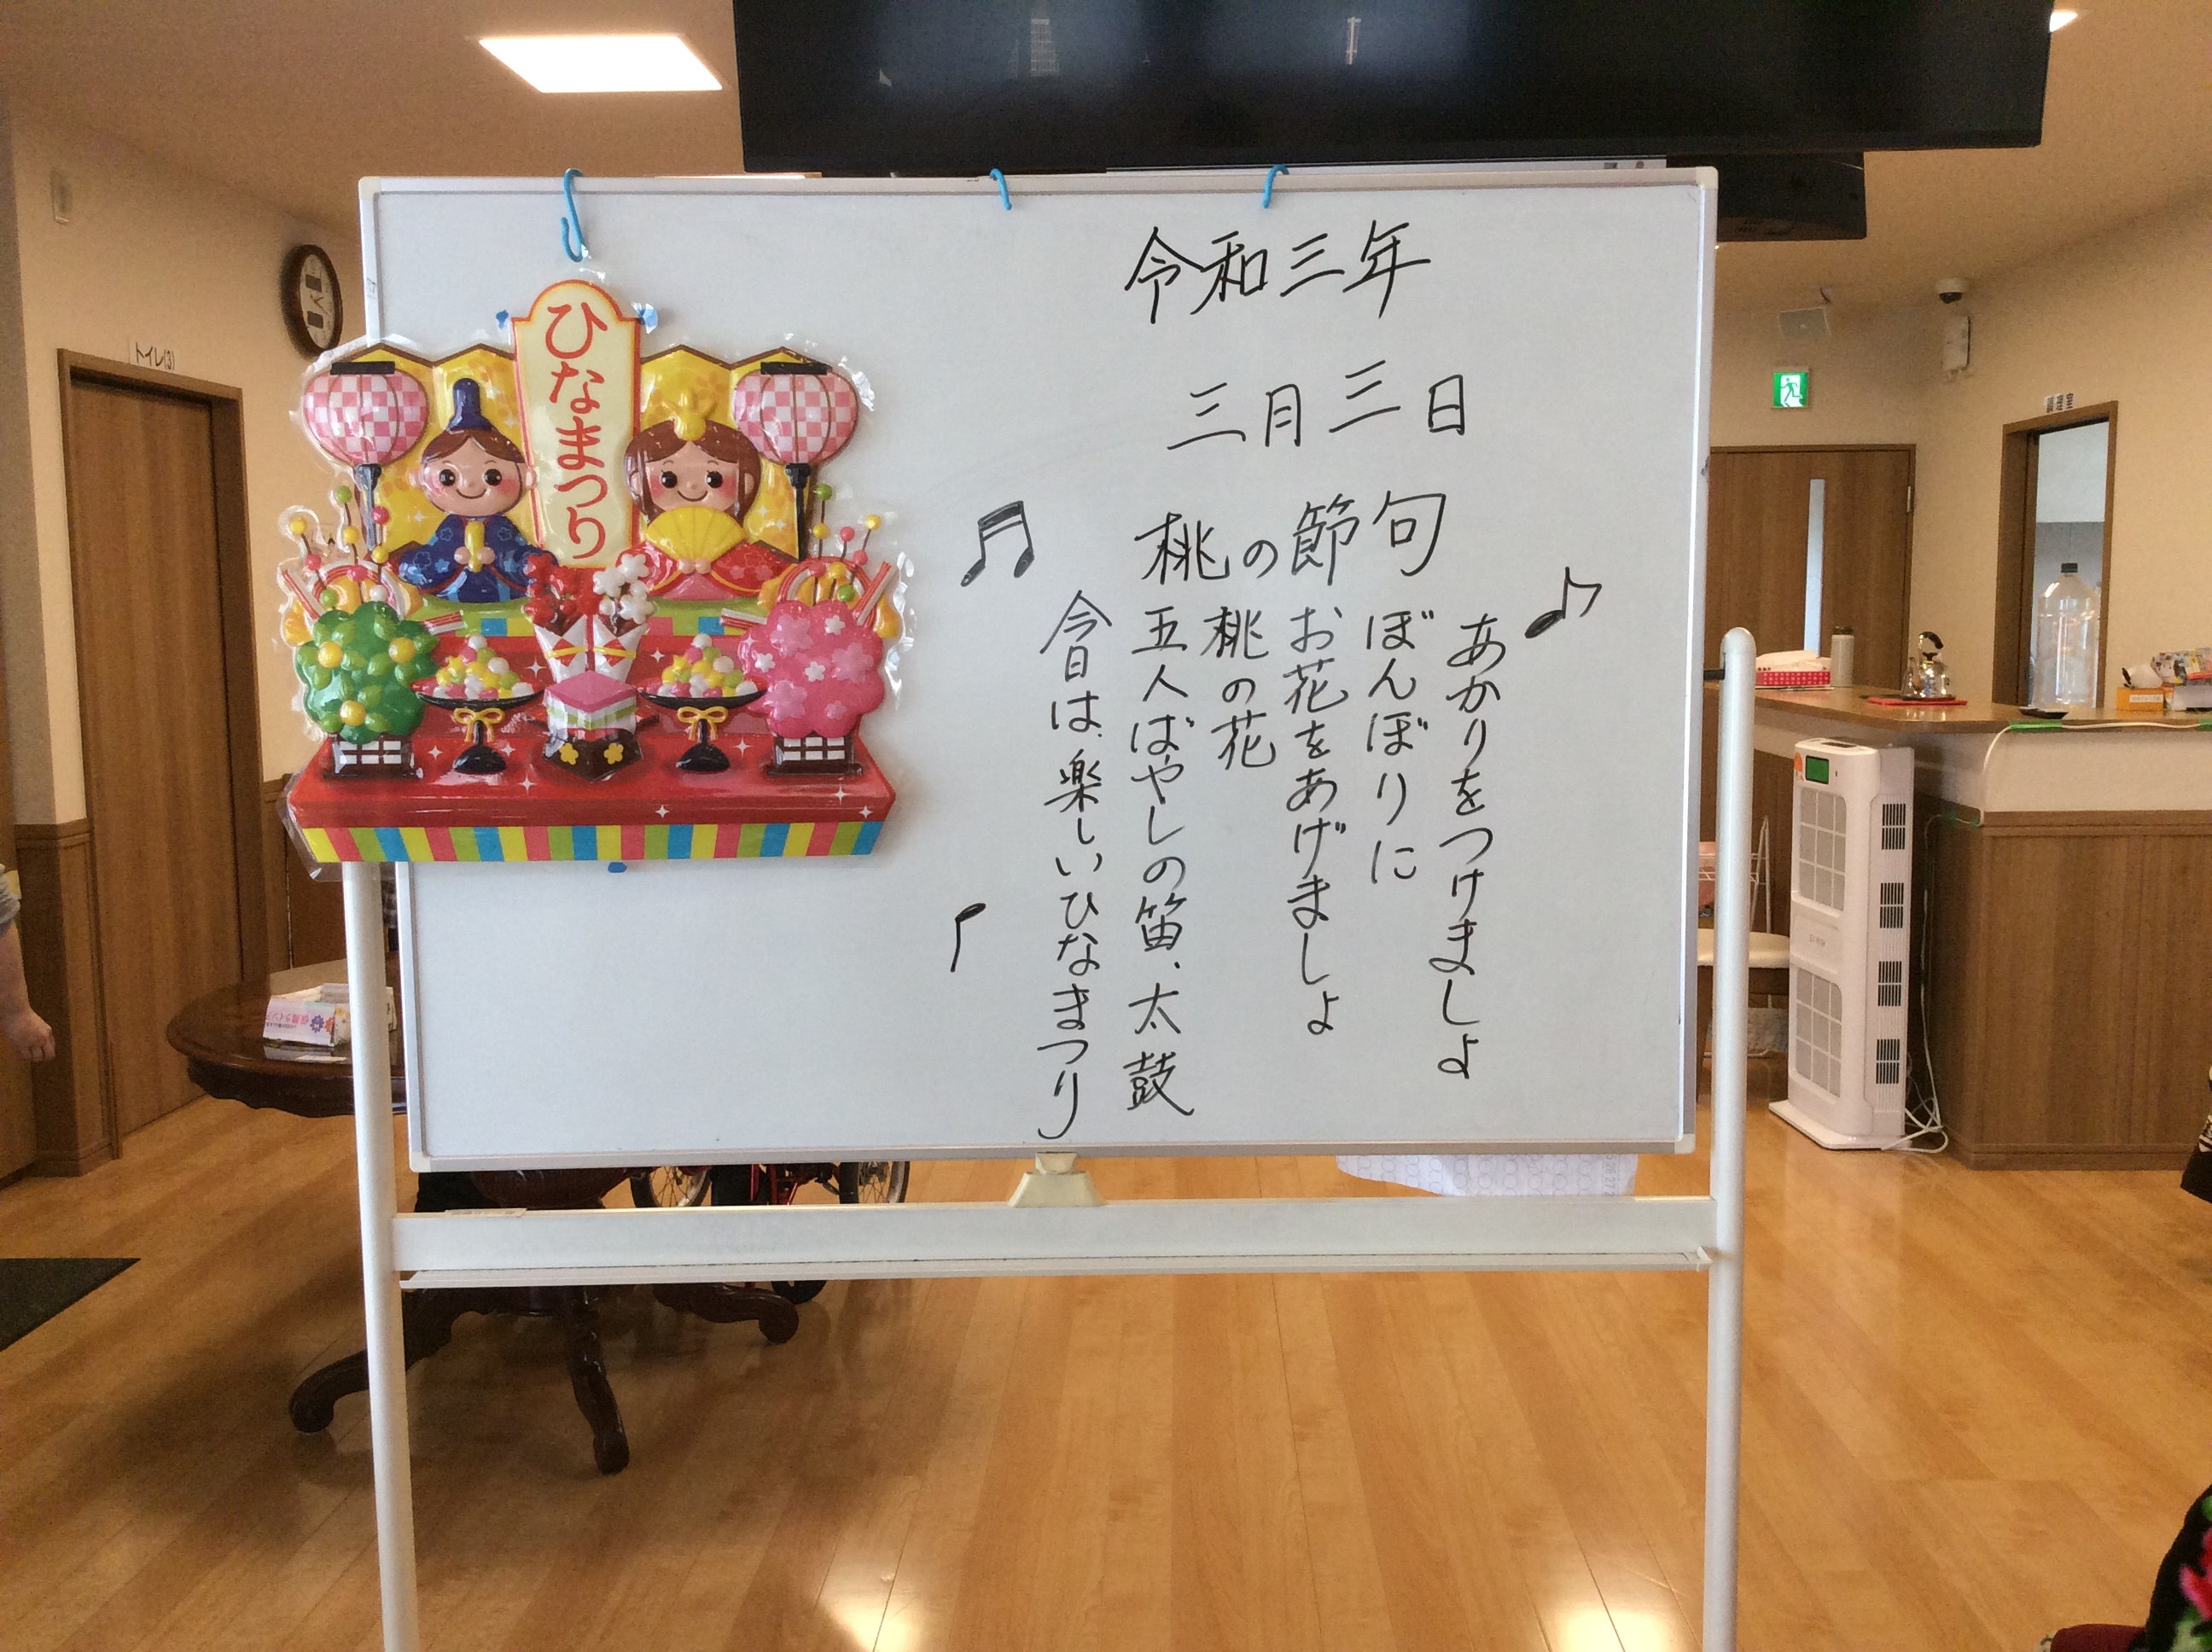 令和三年
三月三日
桃の節句
あかりをつけましょ
ぼんぼりに
お花をあげましょ
桃の花
五人ばやしの笛、太鼓
今日は、楽しいひなまつり
ひなまつり
トイレ(3)